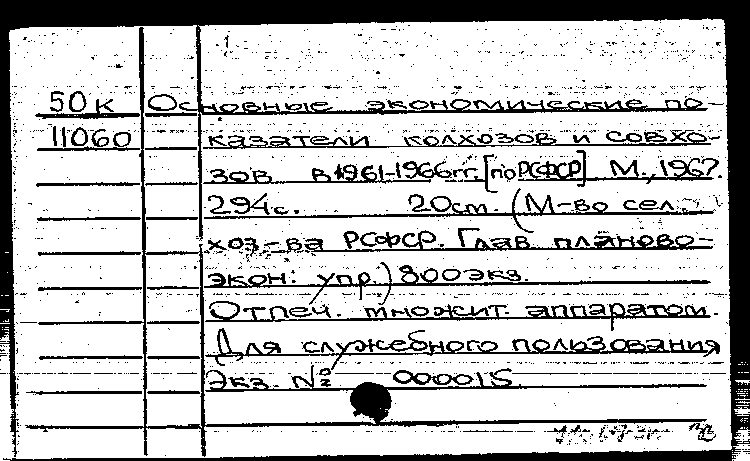 1
50к Основные экономические по-
11060 казатели колхозов и совхо-
зов в 1961-1966гг. [по РСФСР] М., 1967.
294с. 20см. (М-во сел.
хоз-ва РСФСР. Глав. планово-
экон. упр.) 800экз.
Отпеч. множит. аппаратом.
Для служебного пользования
Экз. № 000015